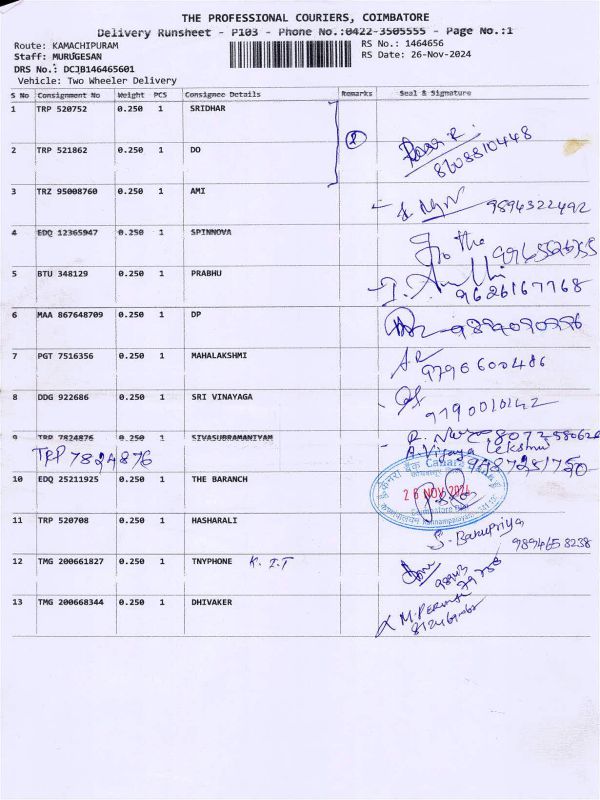 THE PROFESSIONAL COURIERS, COIMBATORE
Delivery Runsheet - P103 - Phone No.:0422-3505555 - Page No.:1
Route: KAMACHIPURAM RS No.: 1464656
Staff: MURUGESAN RS Date: 26-Nov-2024
DRS No.: DCJB146465601
Vehicle: Two Wheeler Delivery
S No Consignment No Weight PCS Consignee Details Remarks Seal & Signature
1 TRP 520752 0.250 1 SRIDHAR
2 TRP 521862 0.250 1 DO 2 8708810448
3 TRZ 95008760 0.250 1 AMI 9894322492
4 EDQ 12365947 0.250 1 SPINNOVA
5 BTU 348129 0.250 1 PRABHU 9626167768
6 MAA 867648709 0.250 1 DP
7 PGT 7516356 0.250 1 MAHALAKSHMI 97906600486
8 DDG 922686 0.250 1 SRI VINAYAGA 9790010142
9 TRP 7824876 0.250 1 SIVASUBRAMANIYAM
TRP 7824876 A. Vijaya Lekshmi
10 EDQ 25211925 0.250 1 THE BARANCH 26 NOV 2024
11 TRP 520708 0.250 1 HASHARALI S. Banupriya
9894658238
12 TMG 200661827 0.250 1 TNYPHONE K.I.T
13 TMG 200668344 0.250 1 DHIVAKER